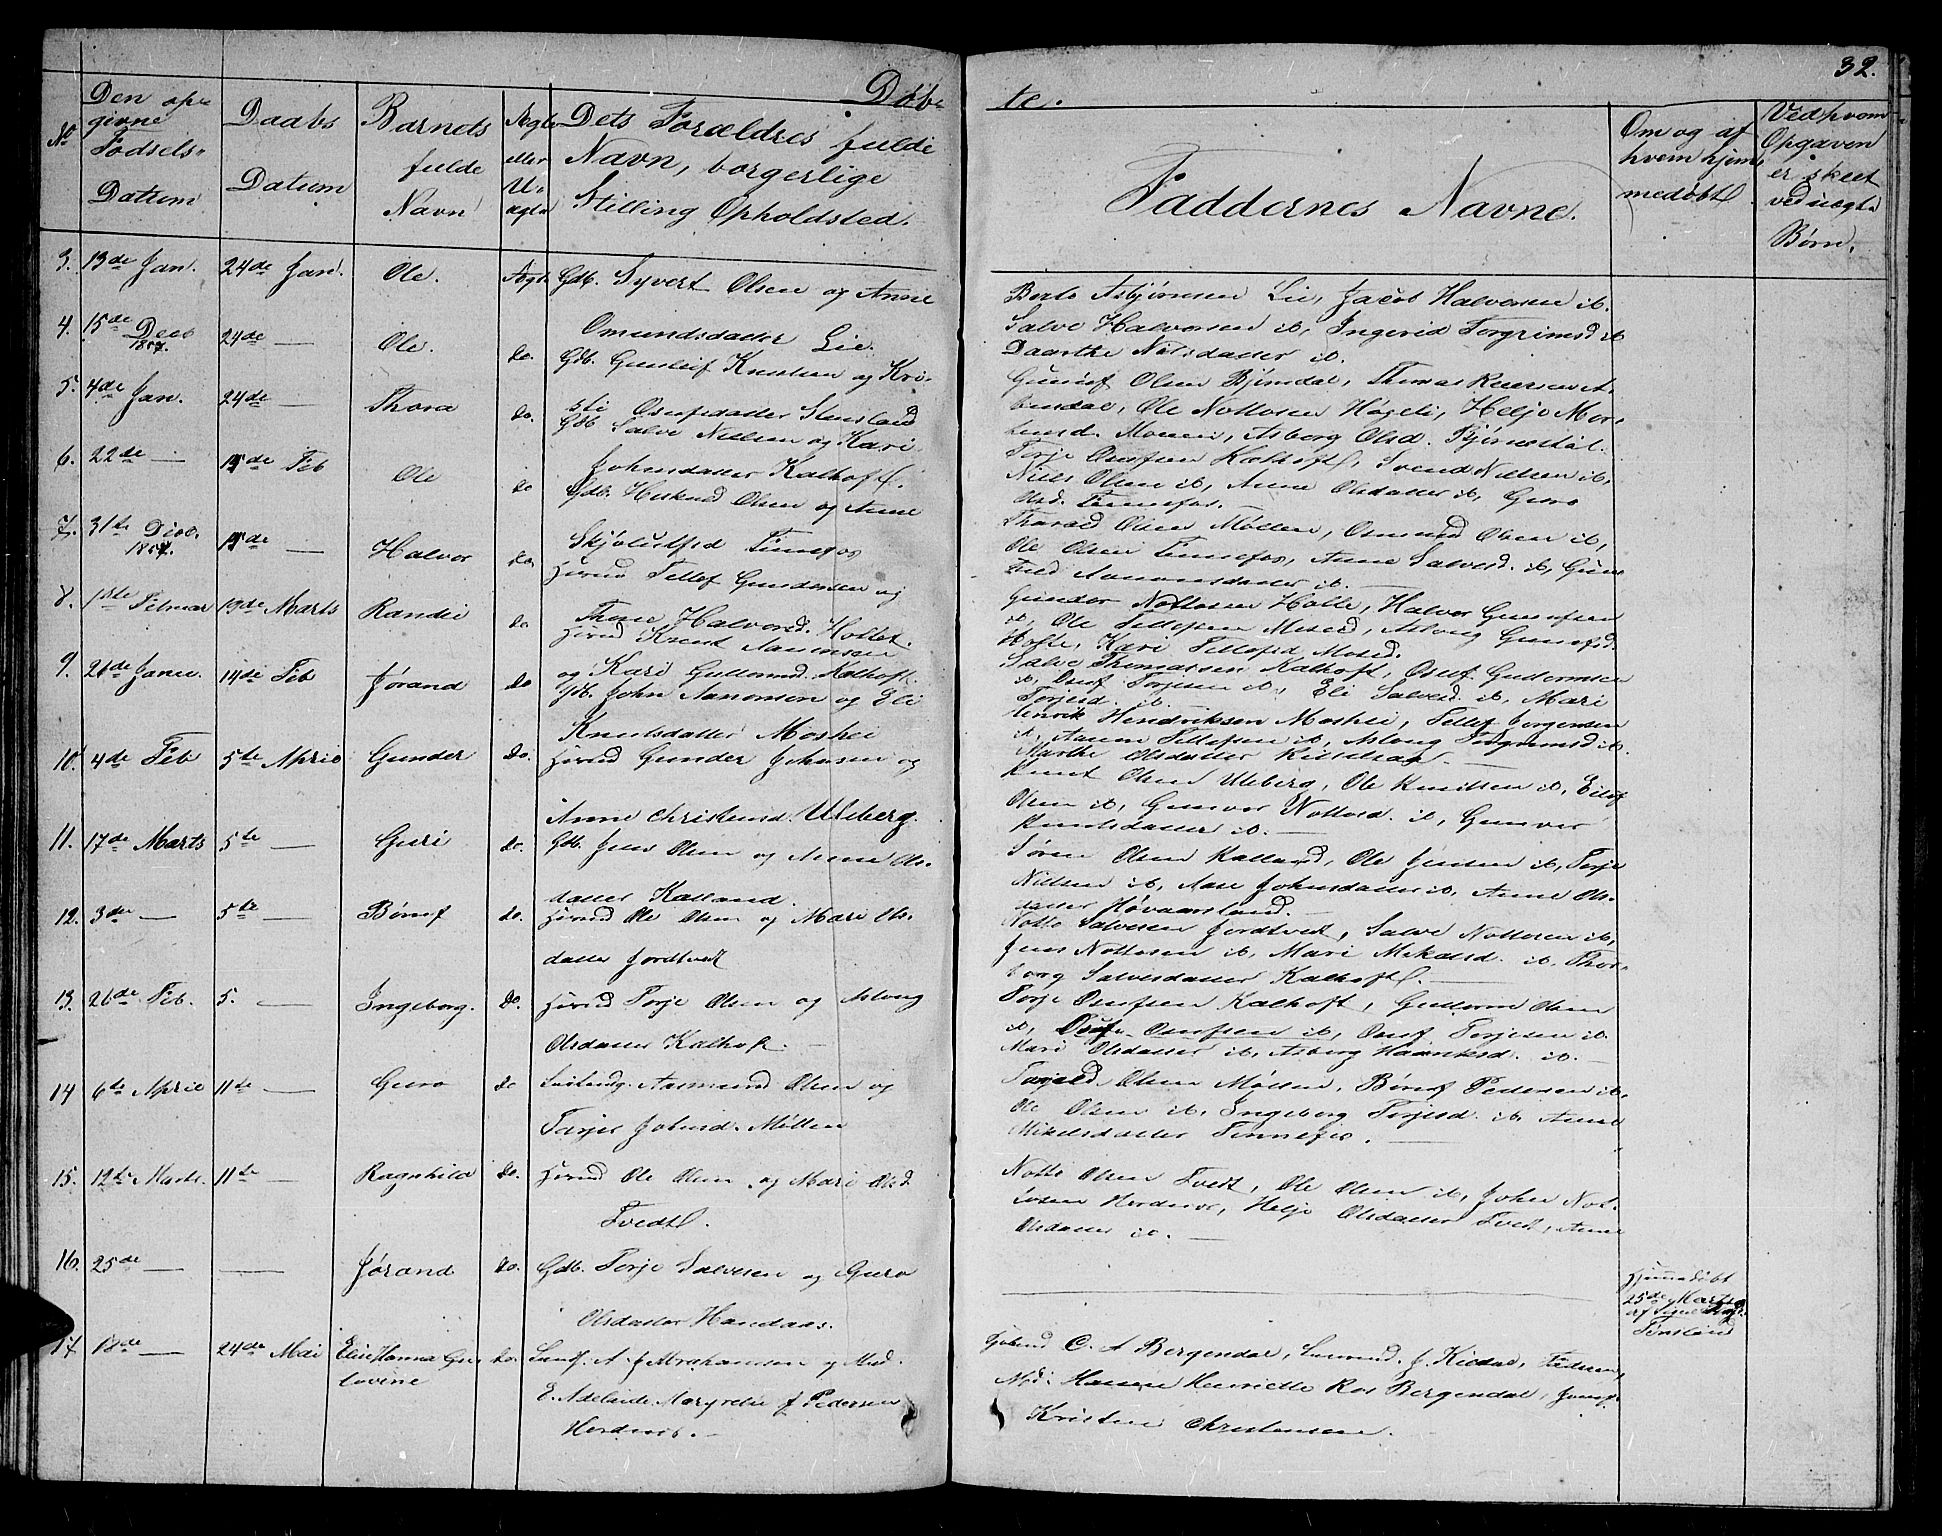 Døb-
te.
32.
No
Den op-
givne
Fødsels-
Datum
Daabs
Datum
Barnets
fulde
Navn
Ægte
eller
U-
ægte
Dets Forældres fulde
Navn, borgerlige
Stilling Opholdsted.
Faddernes Navne.
Om og af
hvem hjem-
medøbt
Ved hvem
Opgaven
er skeet
ved uægte
Børn.
3. 13de Jan. 24de Jan. Ole. Ægte Gdb. Syvert Olsen og Anne
Omundsdatter Lie.
Asbjørnsen Lie, Jacob Halvorsen ib.
Salve Halvorsen ib, Ingerid Torgrimsd ib
Daarthe Nilsdatter ib.
4. 15de Decb 1857. 24de — Ole. do. Gdb. Gunleif Knutsen og Kri-
sti Osufsdatter Stensland
Gunuf Olsen Bjørndal, Thomas
Ole Nottosen Høgeli, Helje Mor-
tensd. Monen, Asborg Olsd.
5. 4de Jan. 24de — Thora do. Gdb Salve Nielsen og Kari
Johnsdatter Kalhoft.
Torje Osufsen Kalhoft, Svend Nilsen ib,
Niels Olsen ib, Anne Olsdatter ib, Guro
Olsd. Tennefos.
6. 22de — 15de Feb Ole do Gdb. Olsen og Anne
Tennefos
Olsen Møllen, Osmund Olsen ib,
Ole Olsen Tennefos, Anne Salvesd. ib, Gun-
ild Aanonsdatter ib. —
7. 31te Dec. 1857. 15de — Halvor do. Huusmd Tellef Gundersen og
Thone Halvorsd. Holtet.
Gunder Nottosen Holte, Halvor Gunufsen
ib, Ole Tellefsen Moseid, Aslaug Gunufsd.
Holte, Kari Tellefsd Moseid.
8. 1ste Februar 19de Marts Randi do. Huusmd Knut Aanonsen
og Kari Guttormsd. Kalhoft.
Salve Thomassen Kalhoft, Osuf Guttormsen
ib, Osuf Torjesen ib, Eli Salvesd. ib, Mari
Torjesd. ib.
9. 26de Janu. 14de Feb Jørand do Gdb. John Aanonsen og Eli
Knutsdatter Moshei
Henrik Hendriksen Moshei, Tellef Jørgensen
ib, Aanen Tellefsen ib, Aslaug Torgrimsd ib.
Marthe Olsdatter
10. 4de Feb 5te April Gunder do. Huusmd Gunder Johnsen og
Anne Christensd. Uleberg.
Knut Olsen Uleberg, Ole Knutsen ib, Eilef
Olsen ib, Gunvor Nottosd. ib, Gunvor
Knutsdatter ib. —
11. 17de Marts 5te — Guri do. Gdb. Jens Olsen og Anne Ols-
datter Kalland.
Søren Olsen Kalland, Ole Jensen ib, Torje
Nilsen ib, Aase Johnsdatter ib, Anne Ols-
datter Høvaarsland.
12. 3de — 5te — Børuf do. Huusmd Ole Olsen og Mari Ols-
datter Jordtvedt
Notto Salvesen Jordtvedt, Salve Nottosen ib,
Jens Nottosen ib, Mari Mikalsd. ib, Thor-
borg Salvesdatter Kalhoft.
13. 26de Feb. 5. — Ingeborg. do. Huusmd Torje Olsen og Aslaug
Olsdatter Kalhoft. —
Torje Osufsen Kalhoft, Guttorm Olsen
ib, Osuf Osufsen ib, Osuf Torjesen ib.
Mari Olsdatter ib, Asborg ib. —
14 6te April 11te — Guro do Aasmund Olsen og
Tarjer Johnsd. Møllen
Torjeld Olsen Møllen, Børuf Pedersen ib,
Ole Olsen ib, Ingeborg Torjesd. ib, Anne
Mikelsdatter Tennefos. —
15. 12te Marts. 11te — Ragnhild do. Huusmd Ole Olsen og Mari Olsd.
Tvedt.
Notto Olsen Tvedt, Ole Olsen ib, John Not-
tosen Herdnes, Helje Olsdatter Tvedt, Anne
Olsdatter ib. —
16. 25de — — Jørand do. Gdb. Torje Salvesen og Guro
Olsdatter Handaas.
Hjemmedøbt
25de Marts
af
17 18de — 24de Mai Elise Hanna Gus-
tovine do. A. J. Abrahamsen og Mad.
E. Adelaide f. Pedersen
C. A Bergendal, J. Kiledal, Pedersen,
Mad: Hansen Henriette Ros Bergendal, Jomf.
Kristine Christensen.